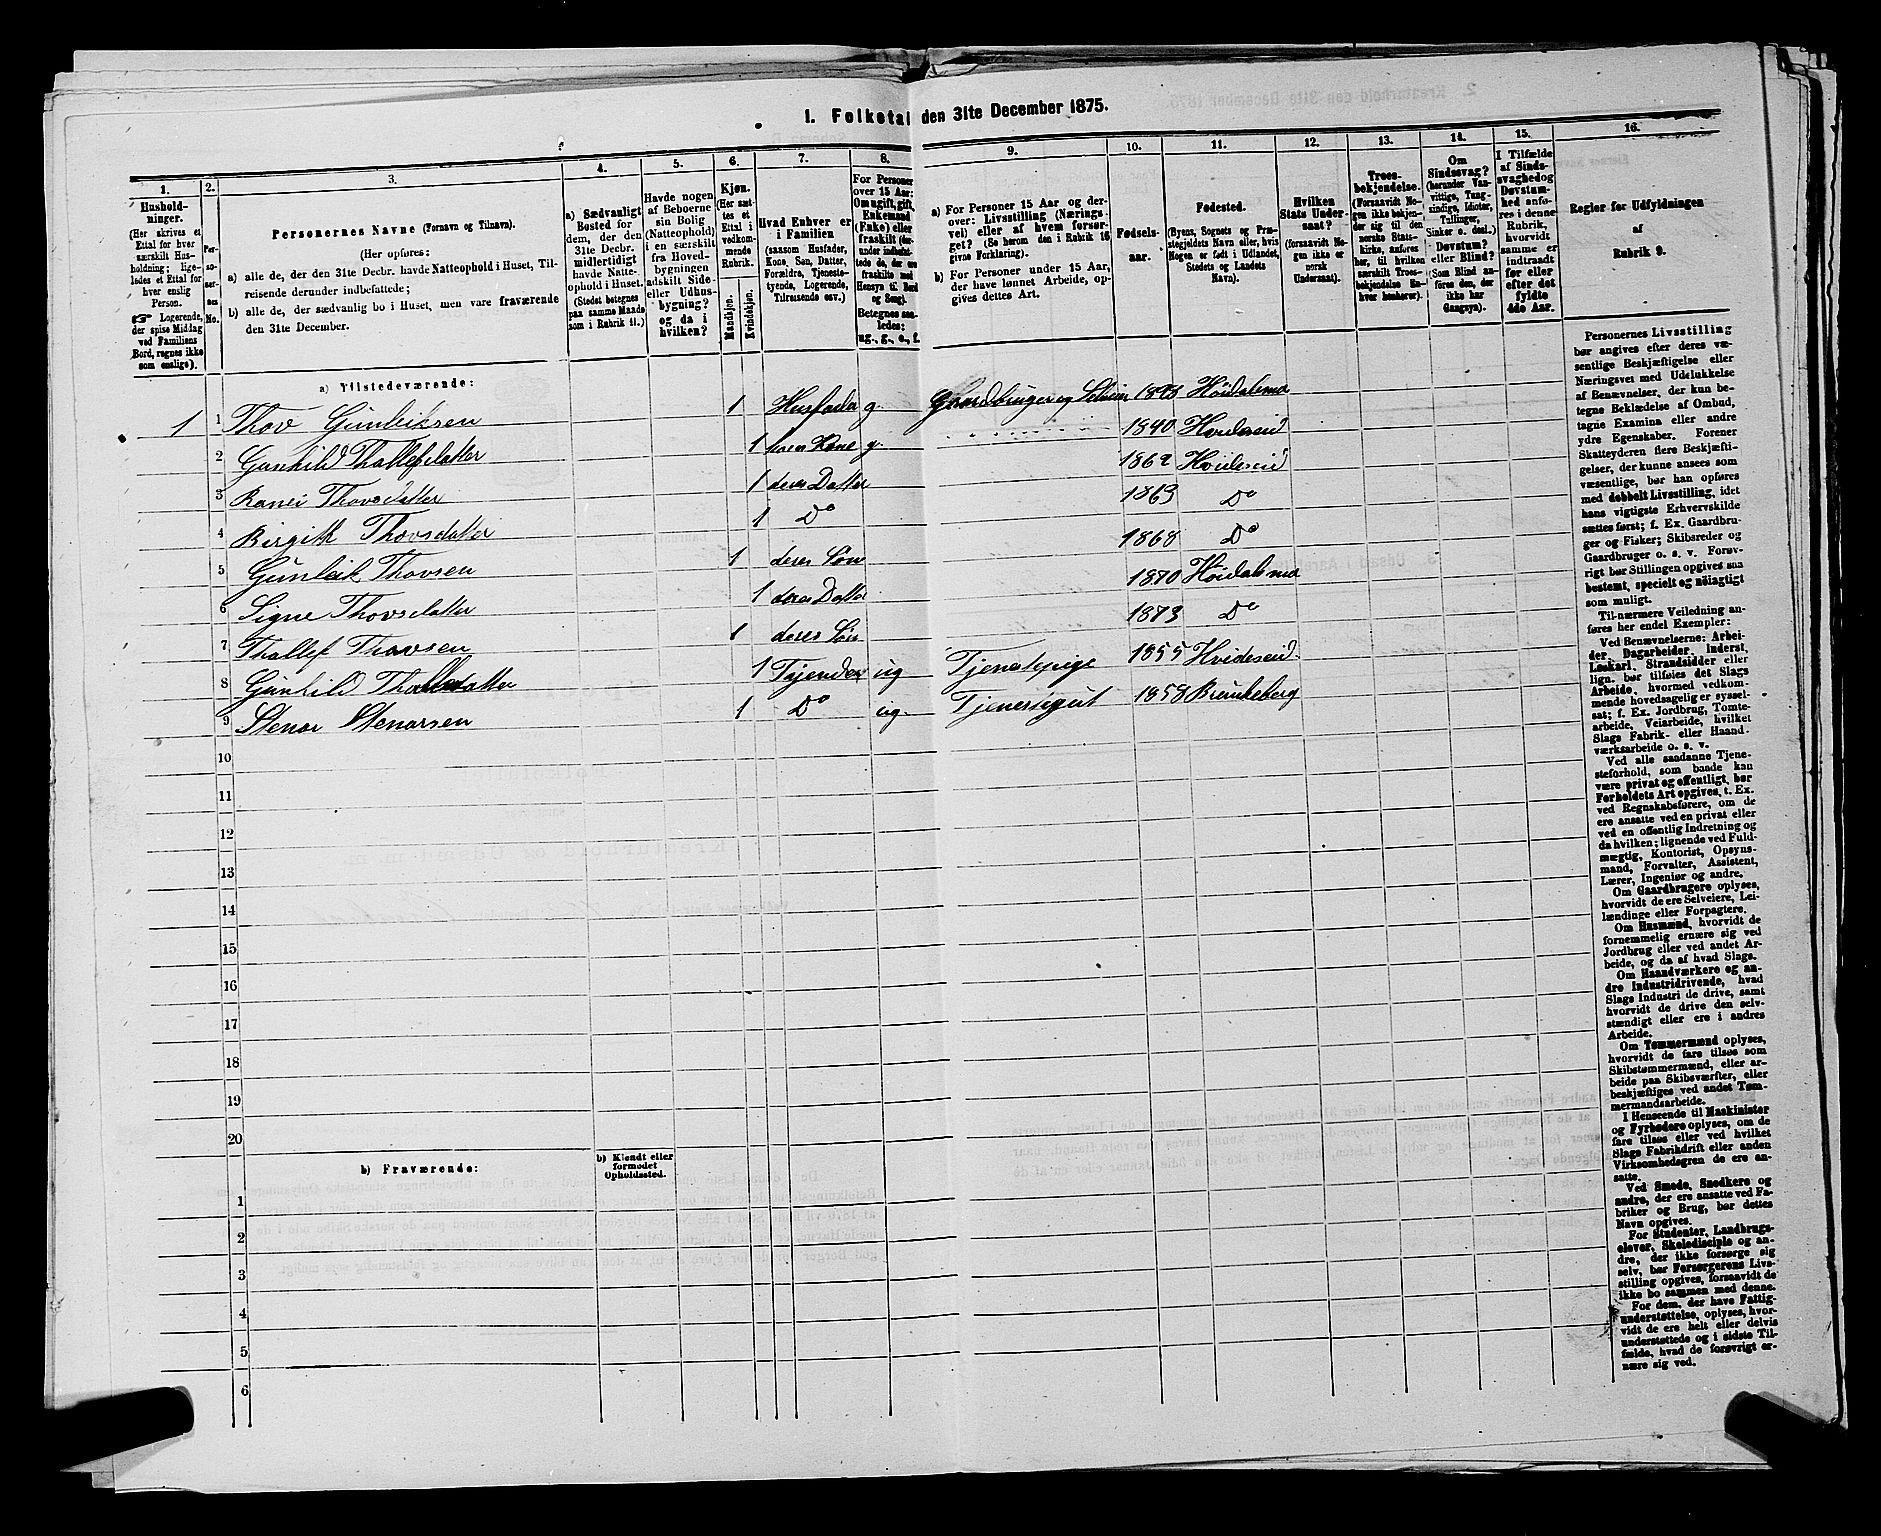 1. Folketal den 31te December 1875.
1. 2. 3. 4. 5. 6. 7. 8. 9. 10. 11. 12. 13. 14. 15. 16.
Hushold-
ninger.
(Her skrives et
Ettal for hver
særskilt Hus-
holdning; lige-
ledes et Ettal for
hver enslig
Person.
☞ Logerende,
der spise Middag
ved Familiens
Bord, regnes ikke
som enslige).
Per-
so-
ner-
nes
No.
Personernes Navne (Fornavn og Tilnavn).
(Her opføres:
a) alle de, der den 31te Decbr. havde Natteophold i Huset, Til-
reisende derunder indbefattede;
b) alle de, der sædvanlig bo i Huset, men vare fraværende
den 31te December.
a) Sædvanligt
Bosted for
dem, der den
31te Decbr.
midlertidigt
havde Natte-
ophold i Huset.
(Stedet betegnes
paa samme Maade
som i Rubrik 11.)
Havde nogen
af Beboerne
sin Bolig
(Natteophold)
i en særskilt
fra Hoved-
bygningen
adskilt Side-
eller Udhus-
bygning?
og da i
hvilken?
Kjøn.
(Her sæt-
tes et
Ettal i
vedkom-
mende
Rubrik.
Mandkjøn.
Kvindekjøn.
Hvad Enhver er
i Familien
(saasom Husfader,
Kone, Søn, Datter,
Forældre, Tjeneste-
tyende, Logerende,
Tilreisende osv.)
For Personer
over 15 Aar:
Om ugift, gift,
Enkemand
(Enke) eller
fraskilt
Betegnes saa-
ledes:
ug., g., e., f.
a) For Personer 15 Aar og der-
over: Livsstilling (Nærings-
vei) eller af hvem forsør-
get? (Se herom den i Rubrik 16
givne Forklaring).
b) For Personer under 15 Aar,
der have lønnet Arbeide, op-
gives dettes Art.
Fødsels-
aar.
Fødested.
(Byens, Sognets og Præ-
stegjeldets Navn eller, hvis
Nogen er født i Udlandet,
Stedets og Landets
Navn).
Hvilken
Stats Under-
saat?
(forsaavidt No-
gen ikke er
norsk
Undersaat).
Troes-
bekjendelse.
(Forsaavidt No-
gen ikke bekjen-
der sig til den
norske Stats-
kirke, anføres
her, til hvilken
særskilt Troes-
bekjendelse En-
hver henhører).
Om
Sindssvag?
(herunder Van-
vittige, Tung-
sindige, Idioter,
Tullinger,
Sinker o. desl.)
Døvstum?
eller Blind?
(Som Blind an-
føres den, der
ikke har
Gangsyn).
I Tilfælde
af Sinds-
svaghed og
Døvstum-
hed anfø-
res i denne
Rubrik,
hvorvidt
samme er
indtraadt
før eller
efter det
fyldte
4de Aar.
Regler for Udfyldningen
af
Rubrik 9.
a) Tilstedeværende:
1 1 Thov Gunleiksen 1 Husfader g. Gaardbruger og Selveier Høidalsmo
2 Gunhild Thallefsdatter 1 hans Kone g. 1840 Hvideseid
3 Ranei Thovsdatter 1 deres Datter 1862 Hvideseid
4 Birgith Thovsdatter 1 Do 1863 Do
5 Gunleik Thovsen 1 deres Søn 1868 Do
6 Signe Thovsdatter 1 deres Datter 1870 Høidalsmo
7 Thallef Thovsen 1 deres Søn 1873 Do
8 Gunhild 1 Tjender ug Tjenestepige 1855 Hvideseid
9 Stenar Stenarsen 1 Do ug. Tjenestegut 1858 Brunkeberg
10
11
12
13
14
15
16
17
18
19
20
b) Fraværende:
b) Kjendt eller
formodet
Opholdssted.
1
2
3
4
5
6
Personernes Livsstilling
bør angives efter deres væ-
sentlige Beskjæftigelse eller
Næringsvei med Udelukkelse
af Benævnelser, der kun be-
tegne Beklædelse af Ombud,
tagne Examina eller andre
ydre Egenskaber. Forener
Skatteyderen flere Beskjæfti-
gelser, der kunne ansees som
væsentlige, bør han opføres
med dobbelt Livsstilling, idet
hans vigtigste Erhvervskilde
sættes først; f. Ex. Gaardbru-
ger og Fisker; Skibsreder og
Gaardbruger o. s. v. Forøv-
rigt bør Stillingen opgives saa
bestemt, specielt og nøiagtigt
som muligt.
Til nærmere Veiledning an-
føres her endel Exempler:
Ved Benævnelserne: Arbei-
der, Dagarbeider, Inderst,
Løskarl, Strandsidder eller
lign. bør tilføies det Slags
Arbeide, hvormed vedkom-
mende hovedsagelig er syssel-
sat; f. Ex. Jordbrug, Tomte-
arbeide, Veiarbeide, hvilket
Slags Fabrik- eller Haand-
værksarbeide o. s. v.
Ved alle saadanne Tjene-
steforhold, som baade kan
være privat og offentligt, bør
Forholdets Art opgives, t. Ex.
ved Regnskabsførere, om de
ere ansatte ved en privat eller
ved en offentlig Indretning og
da hvilken; lignende ved Fuld-
mægtig, Kontorist, Opsyns-
mand, Forvalter, Assistent,
Lærer, Ingeniør og andre.
Om Gaardbrugere oplyses,
hvorvidt de ere Selveiere, Lei-
lændinge eller Forpagtere.
Om Husmænd, hvorvidt de
fornemmelig ernære sig ved
Jordbrug eller ved andet Ar-
beide, og da af hvad Slags.
Om Haandværkere og an-
dre Industridrivende, hvad
Slags Industri de drive, samt
hvorvidt de drive den selv-
stændigt eller ere i andres
Arbeide.
Om Tømmermænd oplyses,
hvorvidt de fare tilsøs som
Skibstømmermænd, eller ar-
beide paa Skibsværfter, eller
beskjæftiges ved andet Tøm-
mermandsarbeide.
I Henseende til Maskinister
og Fyrbødere oplyses, om de
fare tilsøs eller ved hvilket
Slags Fabrikdrift eller anden
Virksomhedsgren de ere an-
satte.
Ved Smede, Snedkere og
andre, der ere ansatte ved Fa-
briker og Brug, bør dettes
Navn opgives.
For Studenter, Landbrugs-
elever, Skoledisciple og an-
dre, der ikke forsørge sig
selv, bør Forsørgerens Livs-
stilling opgives, forsaavidt de
ikke bo sammen med denne.
For dem, der have Fattig-
understøttelse, oplyses, hvor-
vidt de ere helt eller delvis
understøttede og i sidste Til-
fælde, hvad de forøvrigt er-
nære sig ved.